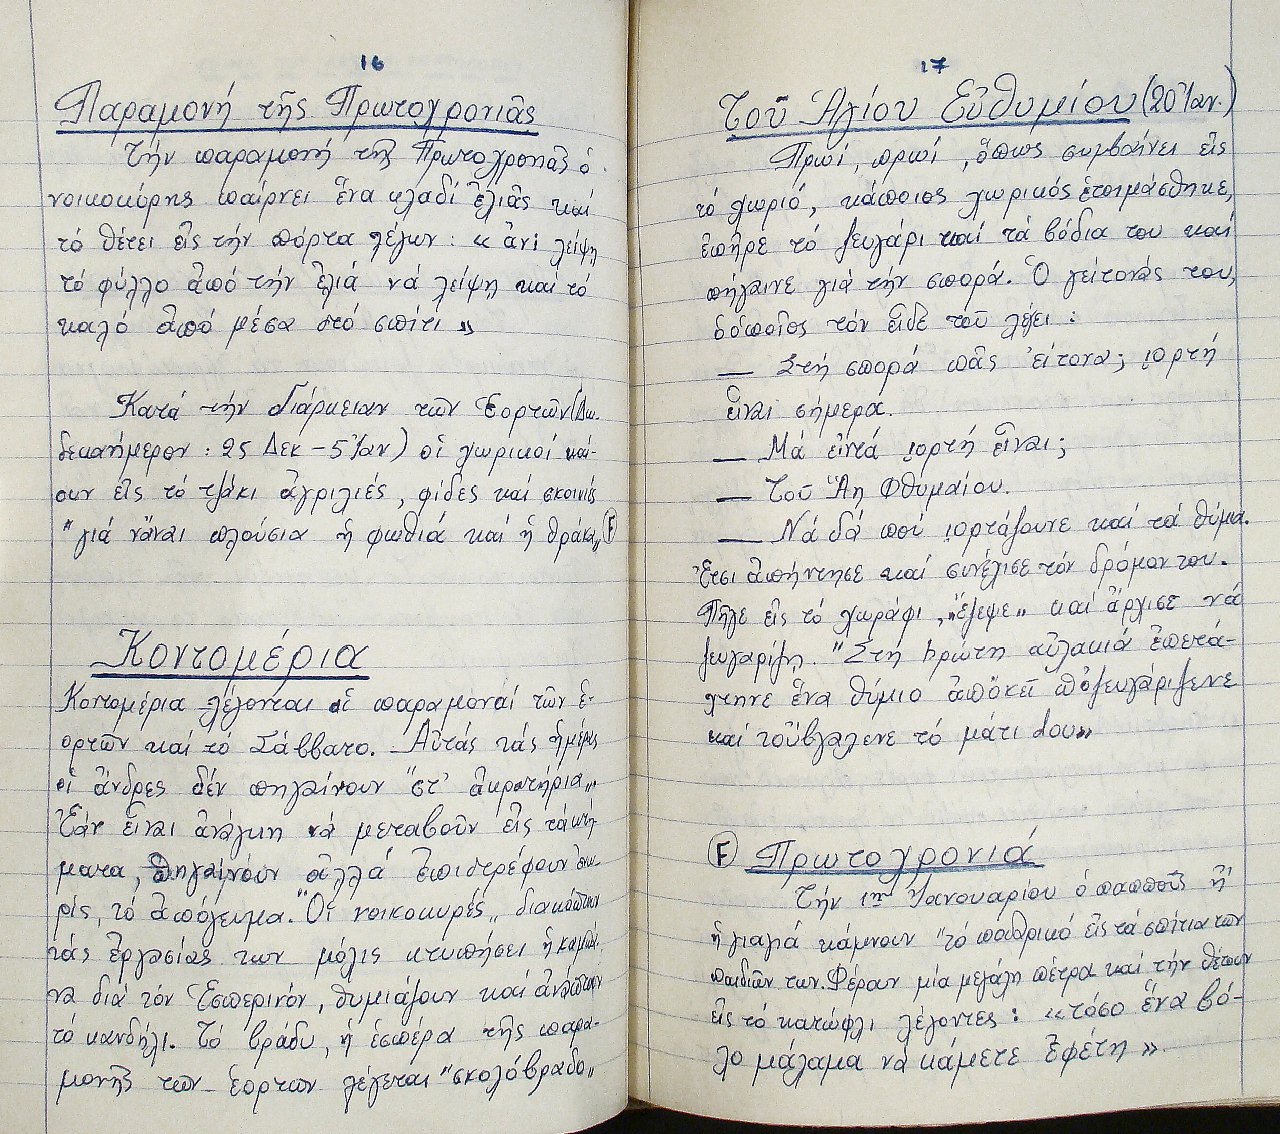 16
Παραμονή τῆς Πρωτοχρονιᾶς
Τήν παραμονή τῆς Πρωτοχρονιᾶς ὁ
νοικοκύρης παίρνει ἕνα κλαδί ἐλιᾶς καί
τό θέτει εἰς τήν πόρτα λέγων : « ἄν λείψη
τό φύλλο ἀπό τήν ἐλιά νά λείψη καί τό
καλό ἀπό μέσα στό σπίτι »
Κατά τήν διάρκειαν τῶν ἑορτῶν (Δω-
δεκαήμερον : 25 Δεκ - 5 Ἰαν) οἱ χωρικοί καί-
ουν εἰς τό τζάκι ἀγριλιές, φίδες καί σκοινιές
"γιά νἆναι πλούσια ἡ φωθιά καί ἡ θράκα„ F
Κοντομέρια
Κοντομέρια λέγονται αἱ παραμοναί τῶν ἑ-
ορτῶν καί τό Σάββατο. Αὐτάς τάς ἡμέρας
οἱ ἄνδρες δέν πηγαίνουν "στ' ἀκρωτήρια„.
Ἐάν εἶναι ἀνάγκη νά μεταβοῦν εἰς τά κτή
ματα, πηγαίνουν ἀλλά ἐπιστρέφουν ἐνω-
ρίς, τό ἀπόγευμα. "Οἱ νοικοκυρές„ διακόπτουν
τάς ἐργασίας των μόλις κτυπήσει ἡ καμπά-
να διά τόν Ἑσπερινόν, θυμιάζουν καί ἀνάπτουν
τό κανδήλι. Τό βράδυ, ἡ ἑσπέρα τῆς παρα-
μονῆς τῶν ἑορτῶν λέγεται "σκολόβραδο„
17
Τοῦ Ἁγίου Εὐθυμίου (20 Ἰαν.)
Πρωί, πρωί, ὅπως συμβαίνει εἰς
τό χωριό, κάποιος χωρικός ἑτοιμάσθηκε,
ἐπῆρε τό ζευγάρι καί τά βόδια του καί
πήγαινε γιά τήν σπορά. Ὁ γείτονάς του,
ὁ ὁποῖος τόν εἶδε τοῦ λέγει :
— Στή σπορά πᾶς 'είτονα; ιορτή
εἶναι σήμερα.
— Μά εἰντά ιορτή εἶναι;
— Τοῦ Ἁη Φθυμαίου.
— Νά δά πού ιορτάζουνε καί τά θύμια.
Ἔτσι ἀπήντησε καί συνέχισε τόν δρόμον του.
Πῆγε εἰς τό χωράφι, "ἔζεψε„ καί ἄρχισε νά
ζευγαρίζη. "Στή πρώτη αὐλακιά ἐπετά-
χτηκε ἕνα θύμιο ἀποκεῖ πὀζευγάριζενε
καί τοὔβγαλενε τό μάτι dου»
F Πρωτοχρονιά
Τήν 1ην Ἰανουαρίου ὁ παπποῦς ἤ
ἡ γιαγιά κάμνουν "τό παθρικό εἰς τά σπίτια τῶν
παιδιῶν των. Φέρουν μία μεγάλη πέτρα καί τήν θέτουν
εἰς τό κατώφλι λέγοντες : « τόσο ἕνα βό-
λο μάλαμα νά κάμετε ἐφέτη ».